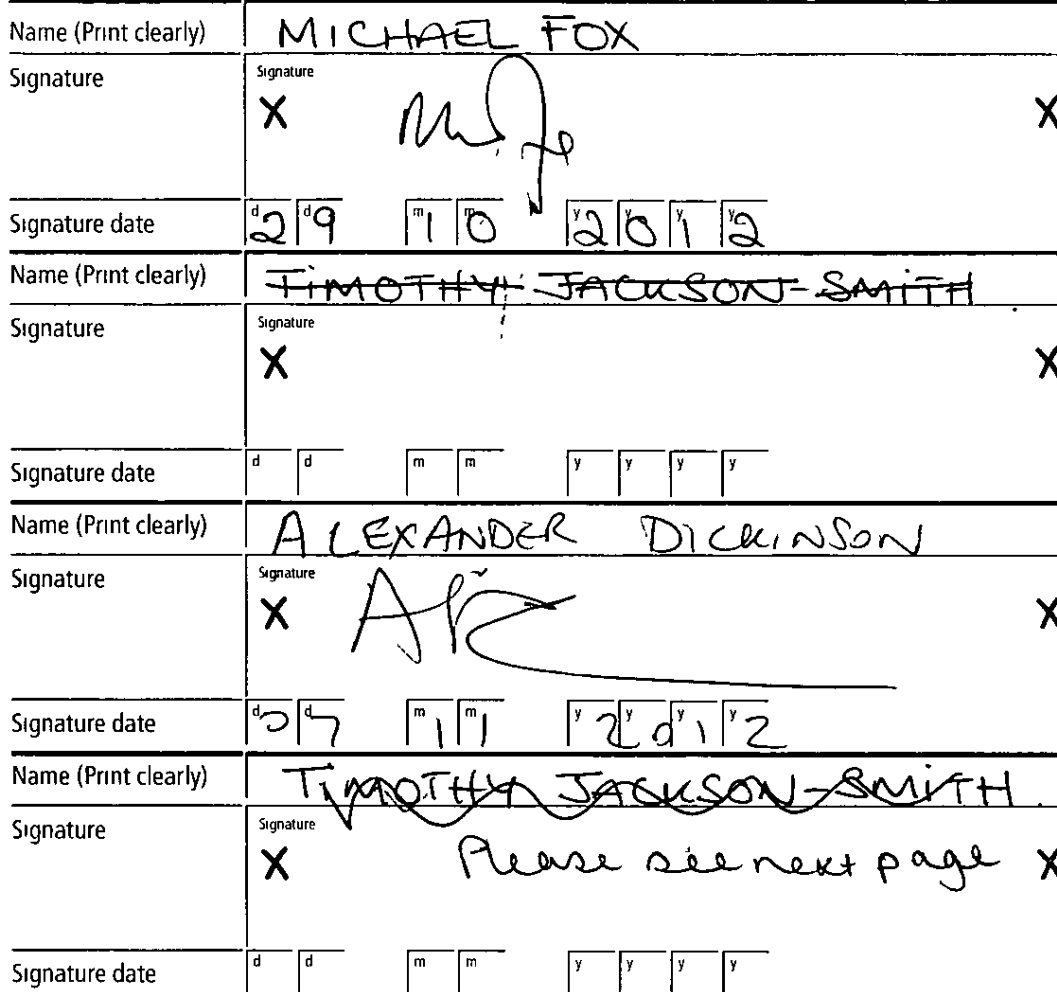 Name (Print clearly) MICHAEL FOX
Signature Signature
X X
Signature date d2 d9 m1 m0 y2 y0 y1 y2
Name (Print clearly) TIMOTHY JACKSON-SMITH
Signature Signature
X X
Signature date d d m m y y y y
Name (Print clearly) ALEXANDER DICKINSON
Signature Signature
X X
Signature date d0 d7 m1 m1 y2 y0 y1 y2
Name (Print clearly) TIMOTHY JACKSON-SMITH.
Signature Signature
X Please see next page X
Signature date d d m m y y y y